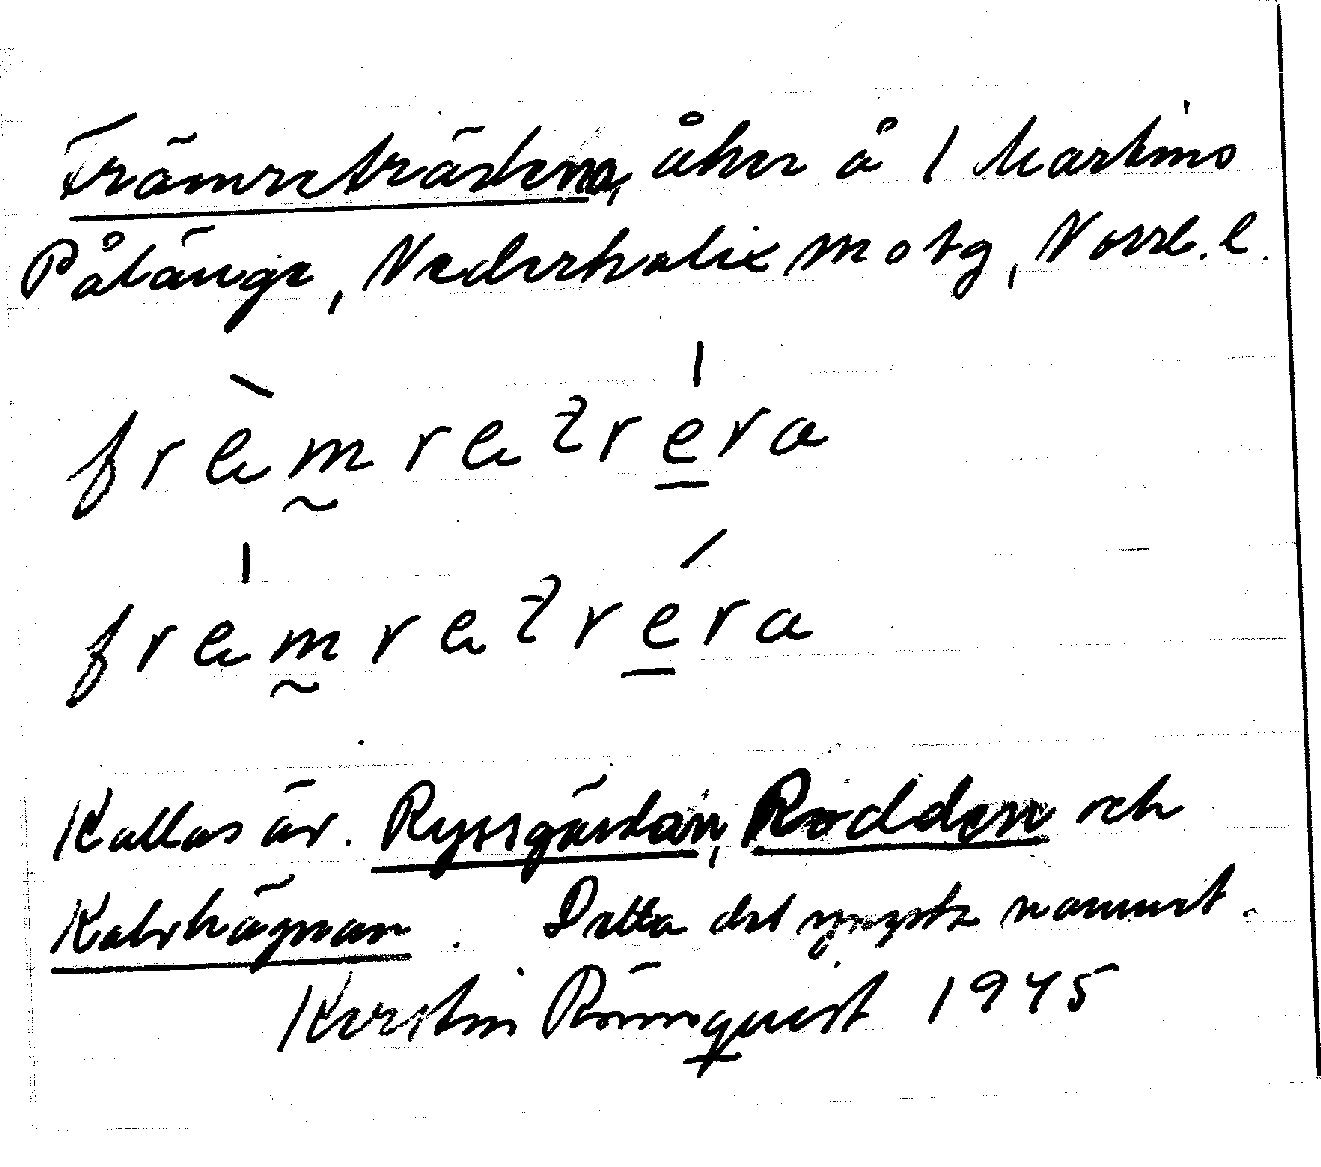 Främreträdena, åker å 1 Martins
Pålänge, Nederkalix motg, Norrb. l.
fræmrætrera
fræmrætrera
Kallas äv. Ryssgärdan, Rödden och
Kalvhägnan. Detta det yngsta namnet.
Kerstin Rönnquist 1945